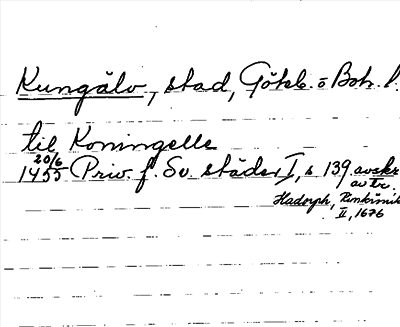 Kungälv, stad, Göteb. o Boh. l.
til Koningelle
20/6
1455 Priv. f. Sv. städer I, s 139 avskr
av tr.
Hadorph, Rimkrönik
II, 1676